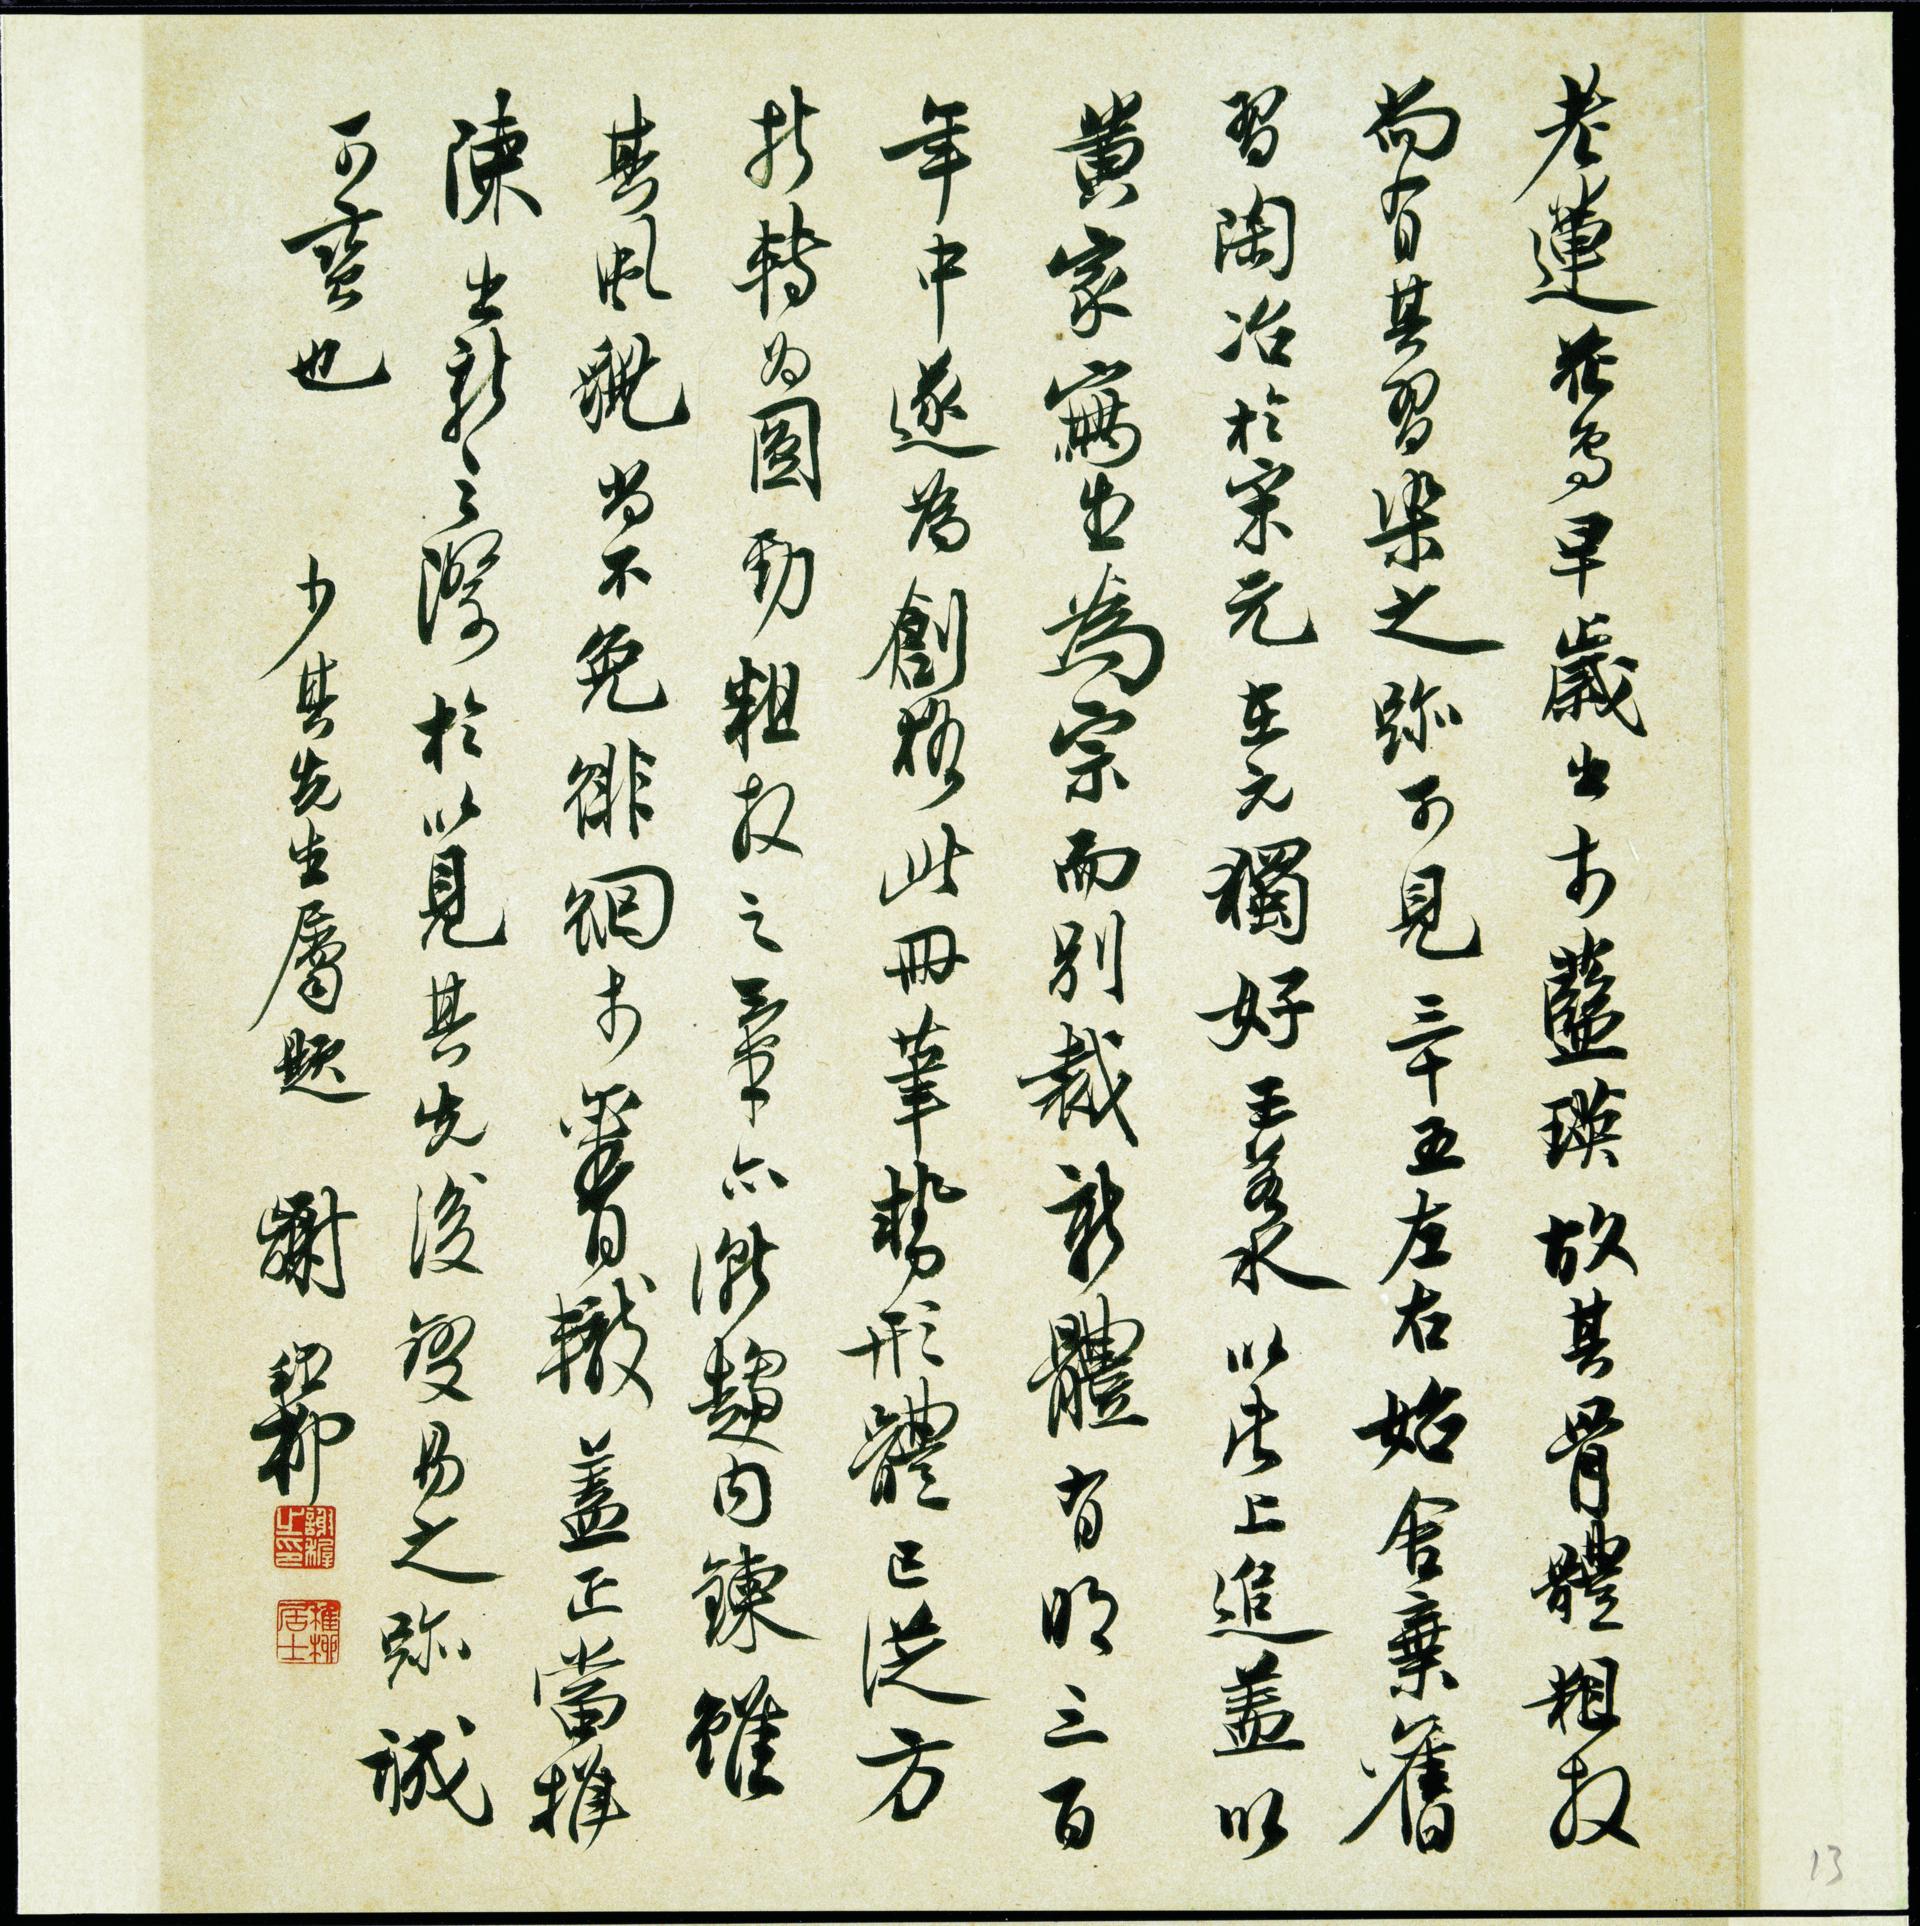 老蓮花鳥早歲出於藍瑛故其骨體粗放
尚有其習染之跡可見三十五左右始舍棄舊
習陶冶於宋元在元獨好王若水以法上追蓋以
黃家寫生為宗而別裁新體有明三百
年中遂為創格此冊筆勢形體已從方
折轉為圓勁粗放之筆亦漸趨內鍊雖
其風貌尚不免徘徊於舊轍蓋正當推
陳出新之際於以見其先後變易之跡誠
可寶也
少其先生屬題 謝稚柳
謝稚之印
稚柳居士
13